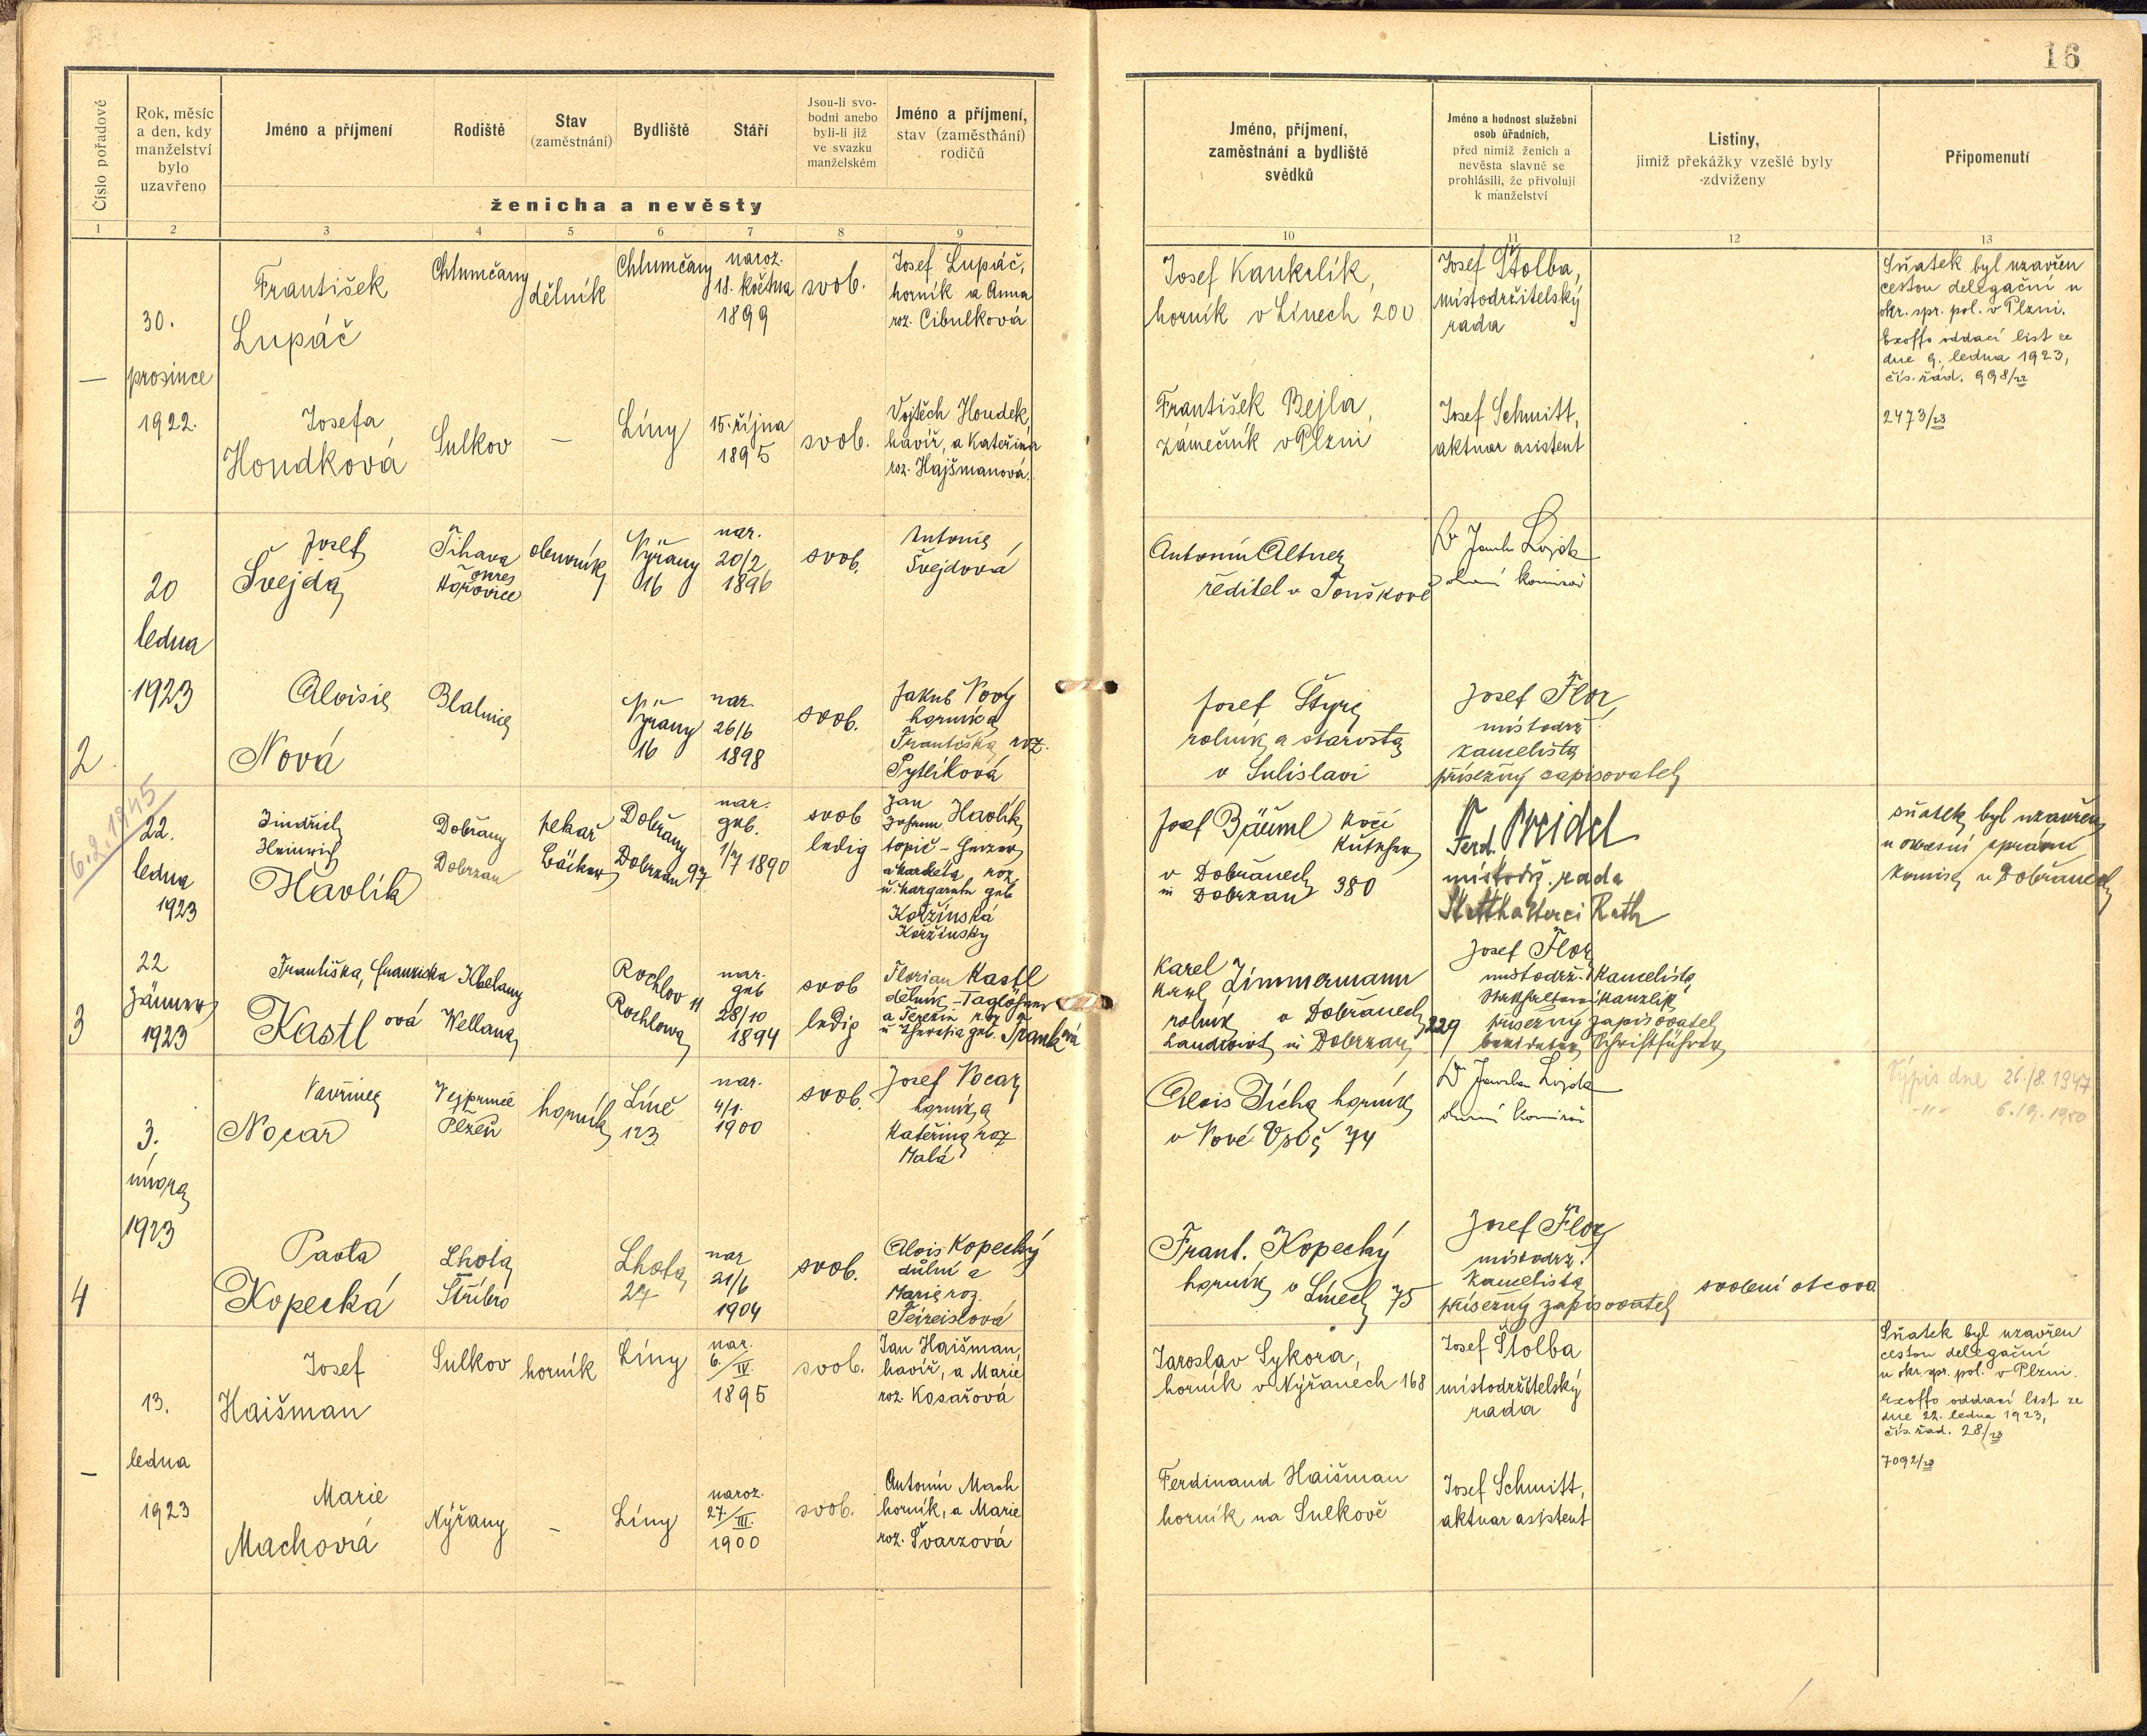 16
Číslo pořadové
Rok, měsíc a den, kdy manželství bylo uzavřeno
Jméno a příjmení
Rodiště
Stav (zaměstnání)
Bydliště
Stáří
Jsou-li svobodni anebo byli-li již ve svazku manželském
Jméno a příjmení, stav (zaměstnání) rodičů
ženicha a nevěsty
Jméno, příjmení, zaměstnání a bydliště svědků
Jméno a hodnost služební osob úřadních, před nimiž ženich a nevěsta slavně se prohlásili, že přivolují k manželství
Listiny, jimiž překážky vzešlé byly zdviženy
Připomenutí
1 2 3 4 5 6 7 8 9 10 11 12 13
—
30.
prosince
1922.
František
Lupáč
Chlumčany
dělník
Chlumčany
naroz.
18. května
1899
svob.
Josef Lupáč,
horník a Anna
roz. Cibulková
Josef Kaukrlík,
horník v Línech 200
Josef Štolba,
místodržitelský
rada
Sňatek byl uzavřen
cestou delegační u
okr. spr. pol. v Plzni.
Exoffo oddací list ze
dne 9. ledna 1923,
čís. řad. 998/22
2473/23
Josefa
Houdková
Sulkov
—
Líny
15. října
1895
svob.
Vojtěch Houdek,
havíř, a Kateřina
roz. Hajšmanová.
František Bejla,
zámečník v Plzni
Josef Schmitt,
aktuar asistent
2
20
ledna
1923
Josef
Švejda
Tihava
okres
Hořovice
obuvník
Nýřany
16
nar.
20/2
1896
svob.
Antonie
Švejdová
Antonín Altner
ředitel v Touškově
Dr
Aloisie
Nová
Blatnice
Nýřany
16
nar.
26/6
1898
svob.
Jakub Nový
horník a
Františka roz.
Pytlíková
Josef Štyre
rolník a starosta
v Sulislavi
Josef Flor
místodrž.
kancelista
přísežný zapisovatel
6.2.1945
3
22.
ledna
1923
Jindřich
Heinrich
Havlík
Dobřany
Dobrzan
pekař
Bäcker
Dobřany
Dobrzan 97
nar.
geb.
1/7 1890
svob
ledig
Jan
Johann Havlík
topič - Heizer
a Markéta roz
u. Margareta geb
Koržínská
Koržinsky
Josef Bäuml kočí
Kutscher
v Dobřanech
in Dobrzan 380
Ferd. Preidel
místodrž. rada
Statthalterei Rath
sňatek byl uzavřen
u okresní správní
komise v Dobřanech
22
Jänner
1923
Františka, Franziska
Kastlová
Kbelany
Wellana
Rochlov 11
Rochlowa
nar.
geb
28/10
1894
svob
ledig
Florian Kastl
dělník - Taglöhner
a Terezie roz
u Theresia geb. Franková
Karel
Karl Zimmermann
rolník v Dobřanech
Landwirt in Dobrzan 229
Josef Flor
místodrž. kancelista
Statthalterei Kanzlist
přísežný zapisovatel
beeideter Schriftführer
4
3.
února
1923
Vavřinec
Nocar
Vejprnice
Plzeň
horník
Líně
123
nar.
4/1.
1900
svob.
Josef Nocar
horník a
Kateřina roz
Malá
Alois Ticha horník
v Nové Vsi č 74
Dr
Výpis dne 26./8.1947
-"- 6.19.1950
Pavla
Kopecká
Lhota
Stříbro
Lhota
27
nar
21/6
1904
svob.
Alois Kopecký
důlní a
Marie roz.
Feireislová
Frant. Kopecký
horník v Línech 75
Josef Flor
místodrž.
kancelista
přísežný zapisovatel
svolení otcova
—
13.
ledna
1923
Josef
Haišman
Sulkov
horník
Líny
nar.
6./IV.
1895
svob.
Jan Haišman,
havíř, a Marie
roz. Kosařová
Jaroslav Sykora,
horník v Nýřanech 168
Josef Štolba
místodržitelský
rada
Sňatek byl uzavřen
cestou delegační
u okr. spr. pol. v Plzni.
Exoffo oddací list ze
dne 22. ledna 1923,
čís. řad. 28/23
7092/23
Marie
Machová
Nýřany
—
Líny
naroz.
27./III.
1900
svob.
Antonín Mach
horník, a Marie
roz. Švarzová
Ferdinand Haišman
horník na Sulkově
Josef Schmitt,
aktuar asistent